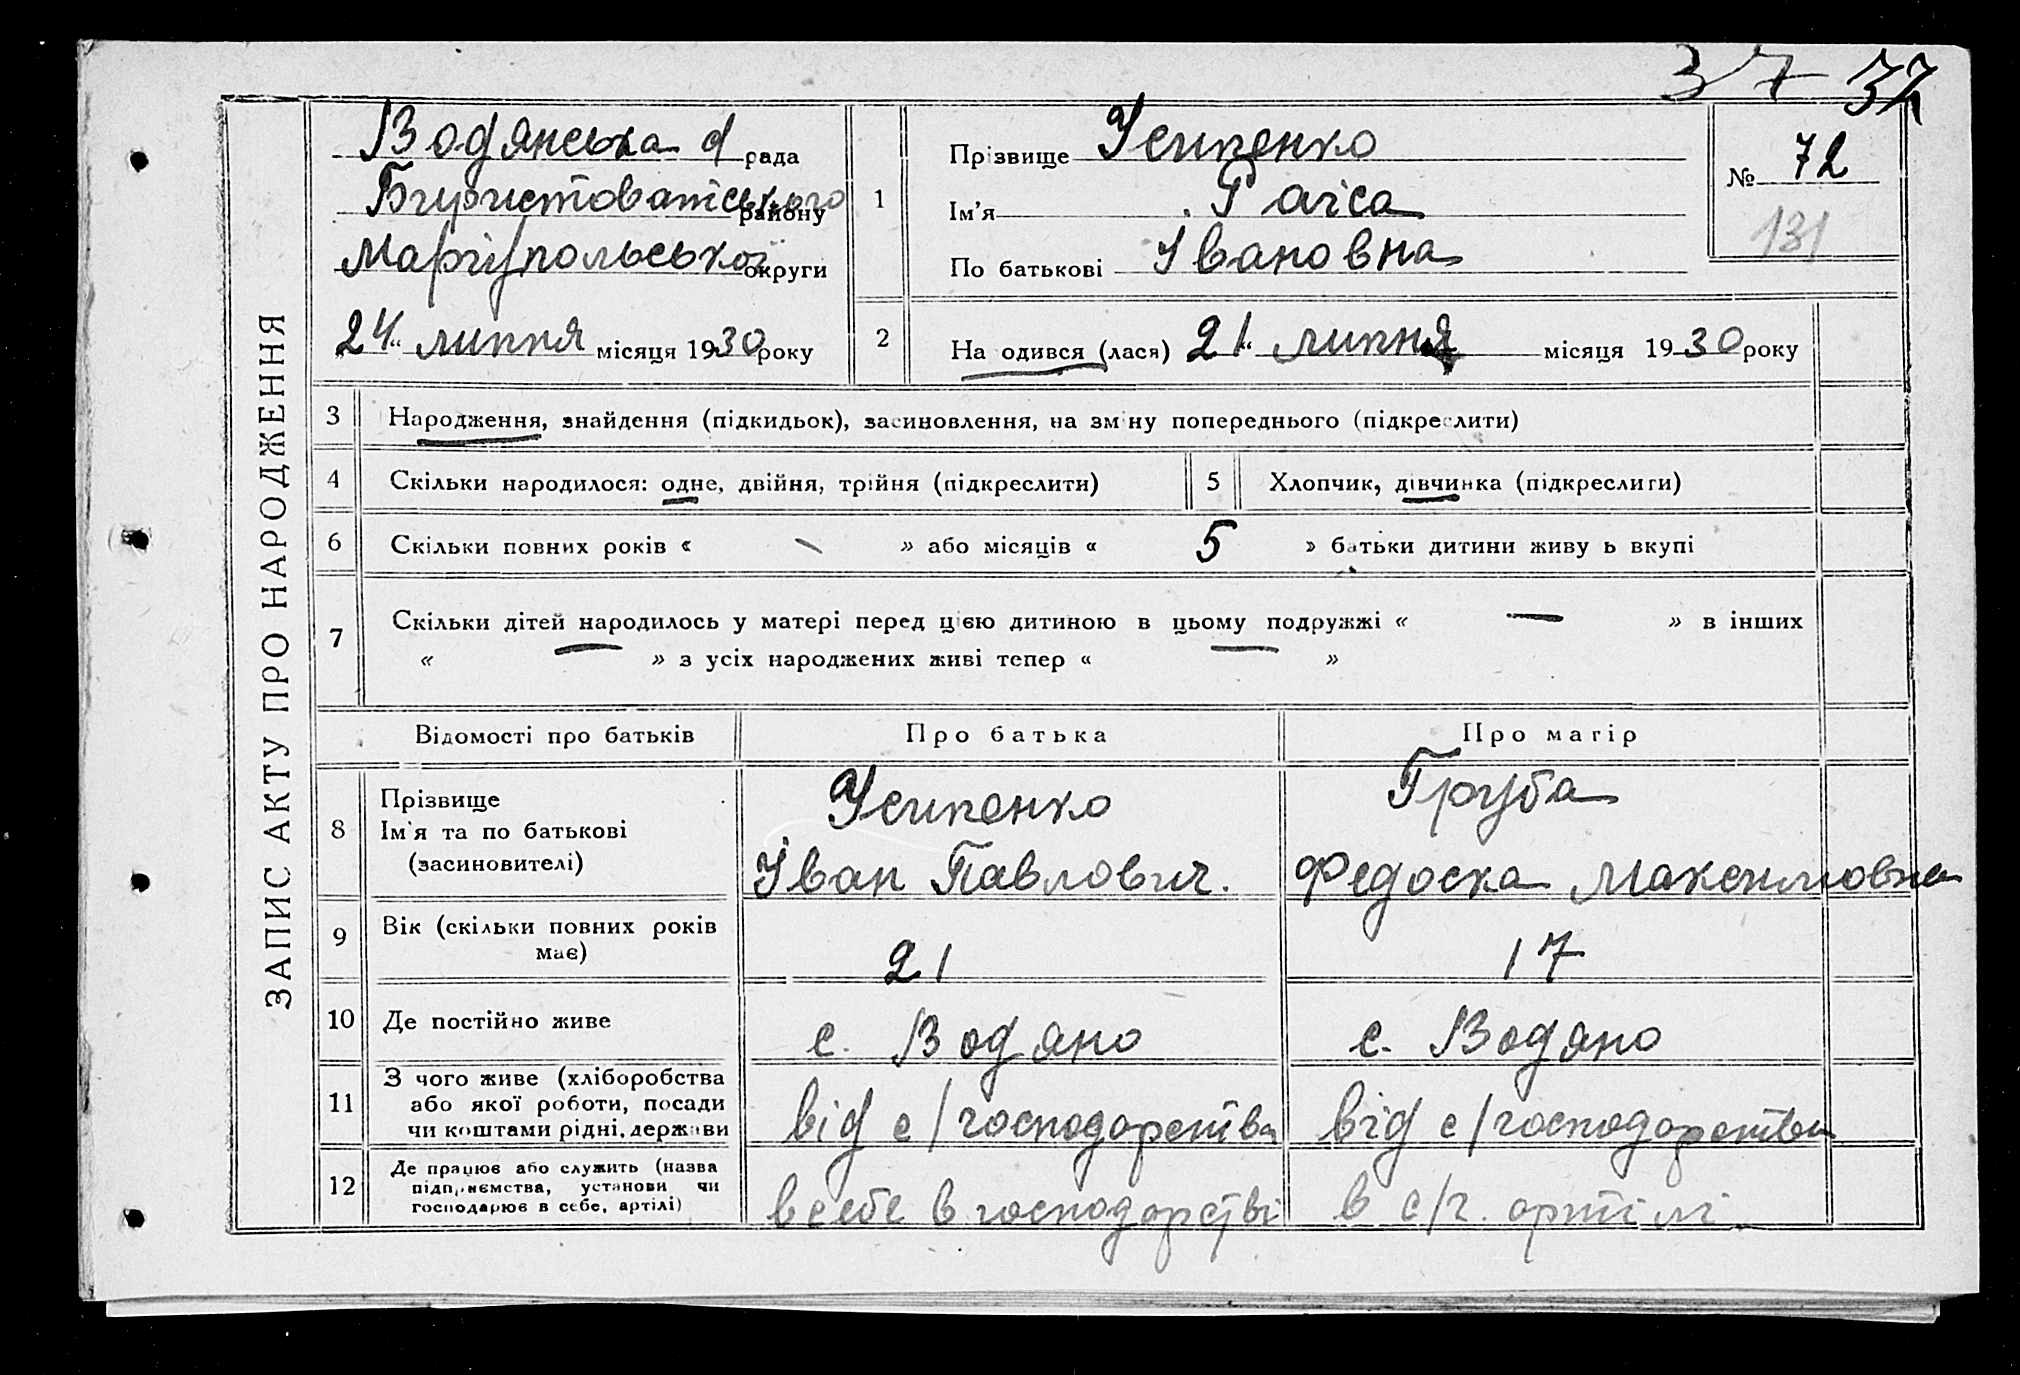 37 37
ЗАПИС АКТУ ПРО НАРОДЖЕННЯ
Водянська рада
району
Маріупольської округи
24 " липня місяця 1930 року
1
Прізвище Усипенко
Ім'я Раїса
По батькові Івановна
№ 72
131
2
На одився (лася) 21 " липня місяця 1930 року
3 Народження, знайдення (підкидьок), засиновлення, на зміну попереднього (підкреслити)
4 Скільки народилося: одне, двійня, трійня (підкреслити)
5 Хлопчик, дівчинка (підкреслити)
6 Скільки повних років « - » або місяців « 5 » батьки дитини живу ь вкупі
7 Скільки дітей народилось у матері перед цією дитиною в цьому подружжі « — » в інших
« — » з усіх народжених живі тепер « — »
Відомості про батьків Про батька Про матір
8 Прізвище
Ім'я та по батькові
(засиновителі)
Усипенко
Іван Павлович.
Груба
Федоска Максимовна
9 Вік (скільки повних років
має)
21 17
10 Де постійно живе с. Водяно с. Водяно
11 З чого живе (хліборобства
або якої роботи, посади
чи коштами рідні, держави
від с/господарства від с/господарства
12 Де працює або служить (назва
підприємства, установи чи
господарює в себе, артілі)
в себе в господарстві в с/г. артілі